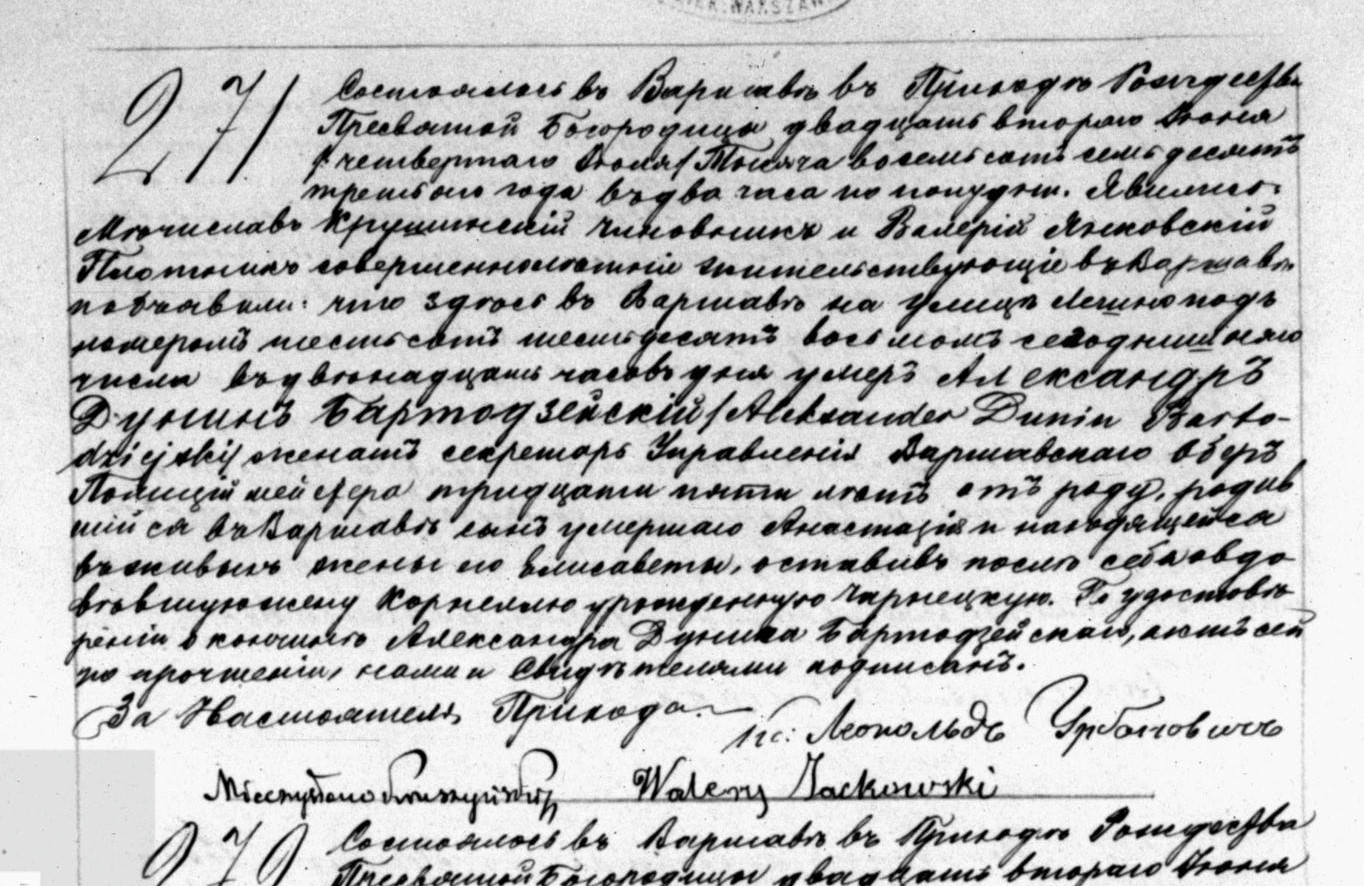 WARSZAW
271 Состоялось въ Варшавѣ въ Приходѣ Рождества
Пресвятой Богородицы двадцать втораго Іюня
/: четвертаго Іюля / Тысяча восемьсотъ семьдесятъ
третьяго года въ два часа по полудни. Явились
Мѣчиславъ Крушинскій чиновникъ и Валерій Янковскій
Плотникъ совершеннолѣтніе жительствующіе въ Варшавѣ
и объявили: что здѣсь въ Варшавѣ на улицѣ Лешно подъ
номеромъ шестьсотъ шестьдесятъ восьмомъ сегодняшняго
числа въ двѣнадцать часовъ дня умеръ Александръ
Дунинъ Бартодзейскій / Aleksander Dunin Barto-
dziejski / женатъ секретарь Управленія Варшавскаго Оберъ
Полиціймейстера тридцати пяти лѣтъ отъ роду, родив
шійся въ Варшавѣ сынъ умершаго Анастазія и находящейся
въ живыхъ жены его Елисаветы, оставивъ послѣ себя овдо
вѣвшую жену Корнелію урожденную Чарнецкую. По удостовѣ
реніи о кончинѣ Александра Дунина Бартодзейскаго, актъ сей
по прочтеніи, нами и Свидѣтелями подписанъ.
За Настоятеля Прихода
Кс: Леопольдъ Урбановичъ
Walery Jackowski
272 Состоялось въ Варшавѣ въ Приходѣ Рождества
Пресвятой Богородицы двадцать втораго Іюня